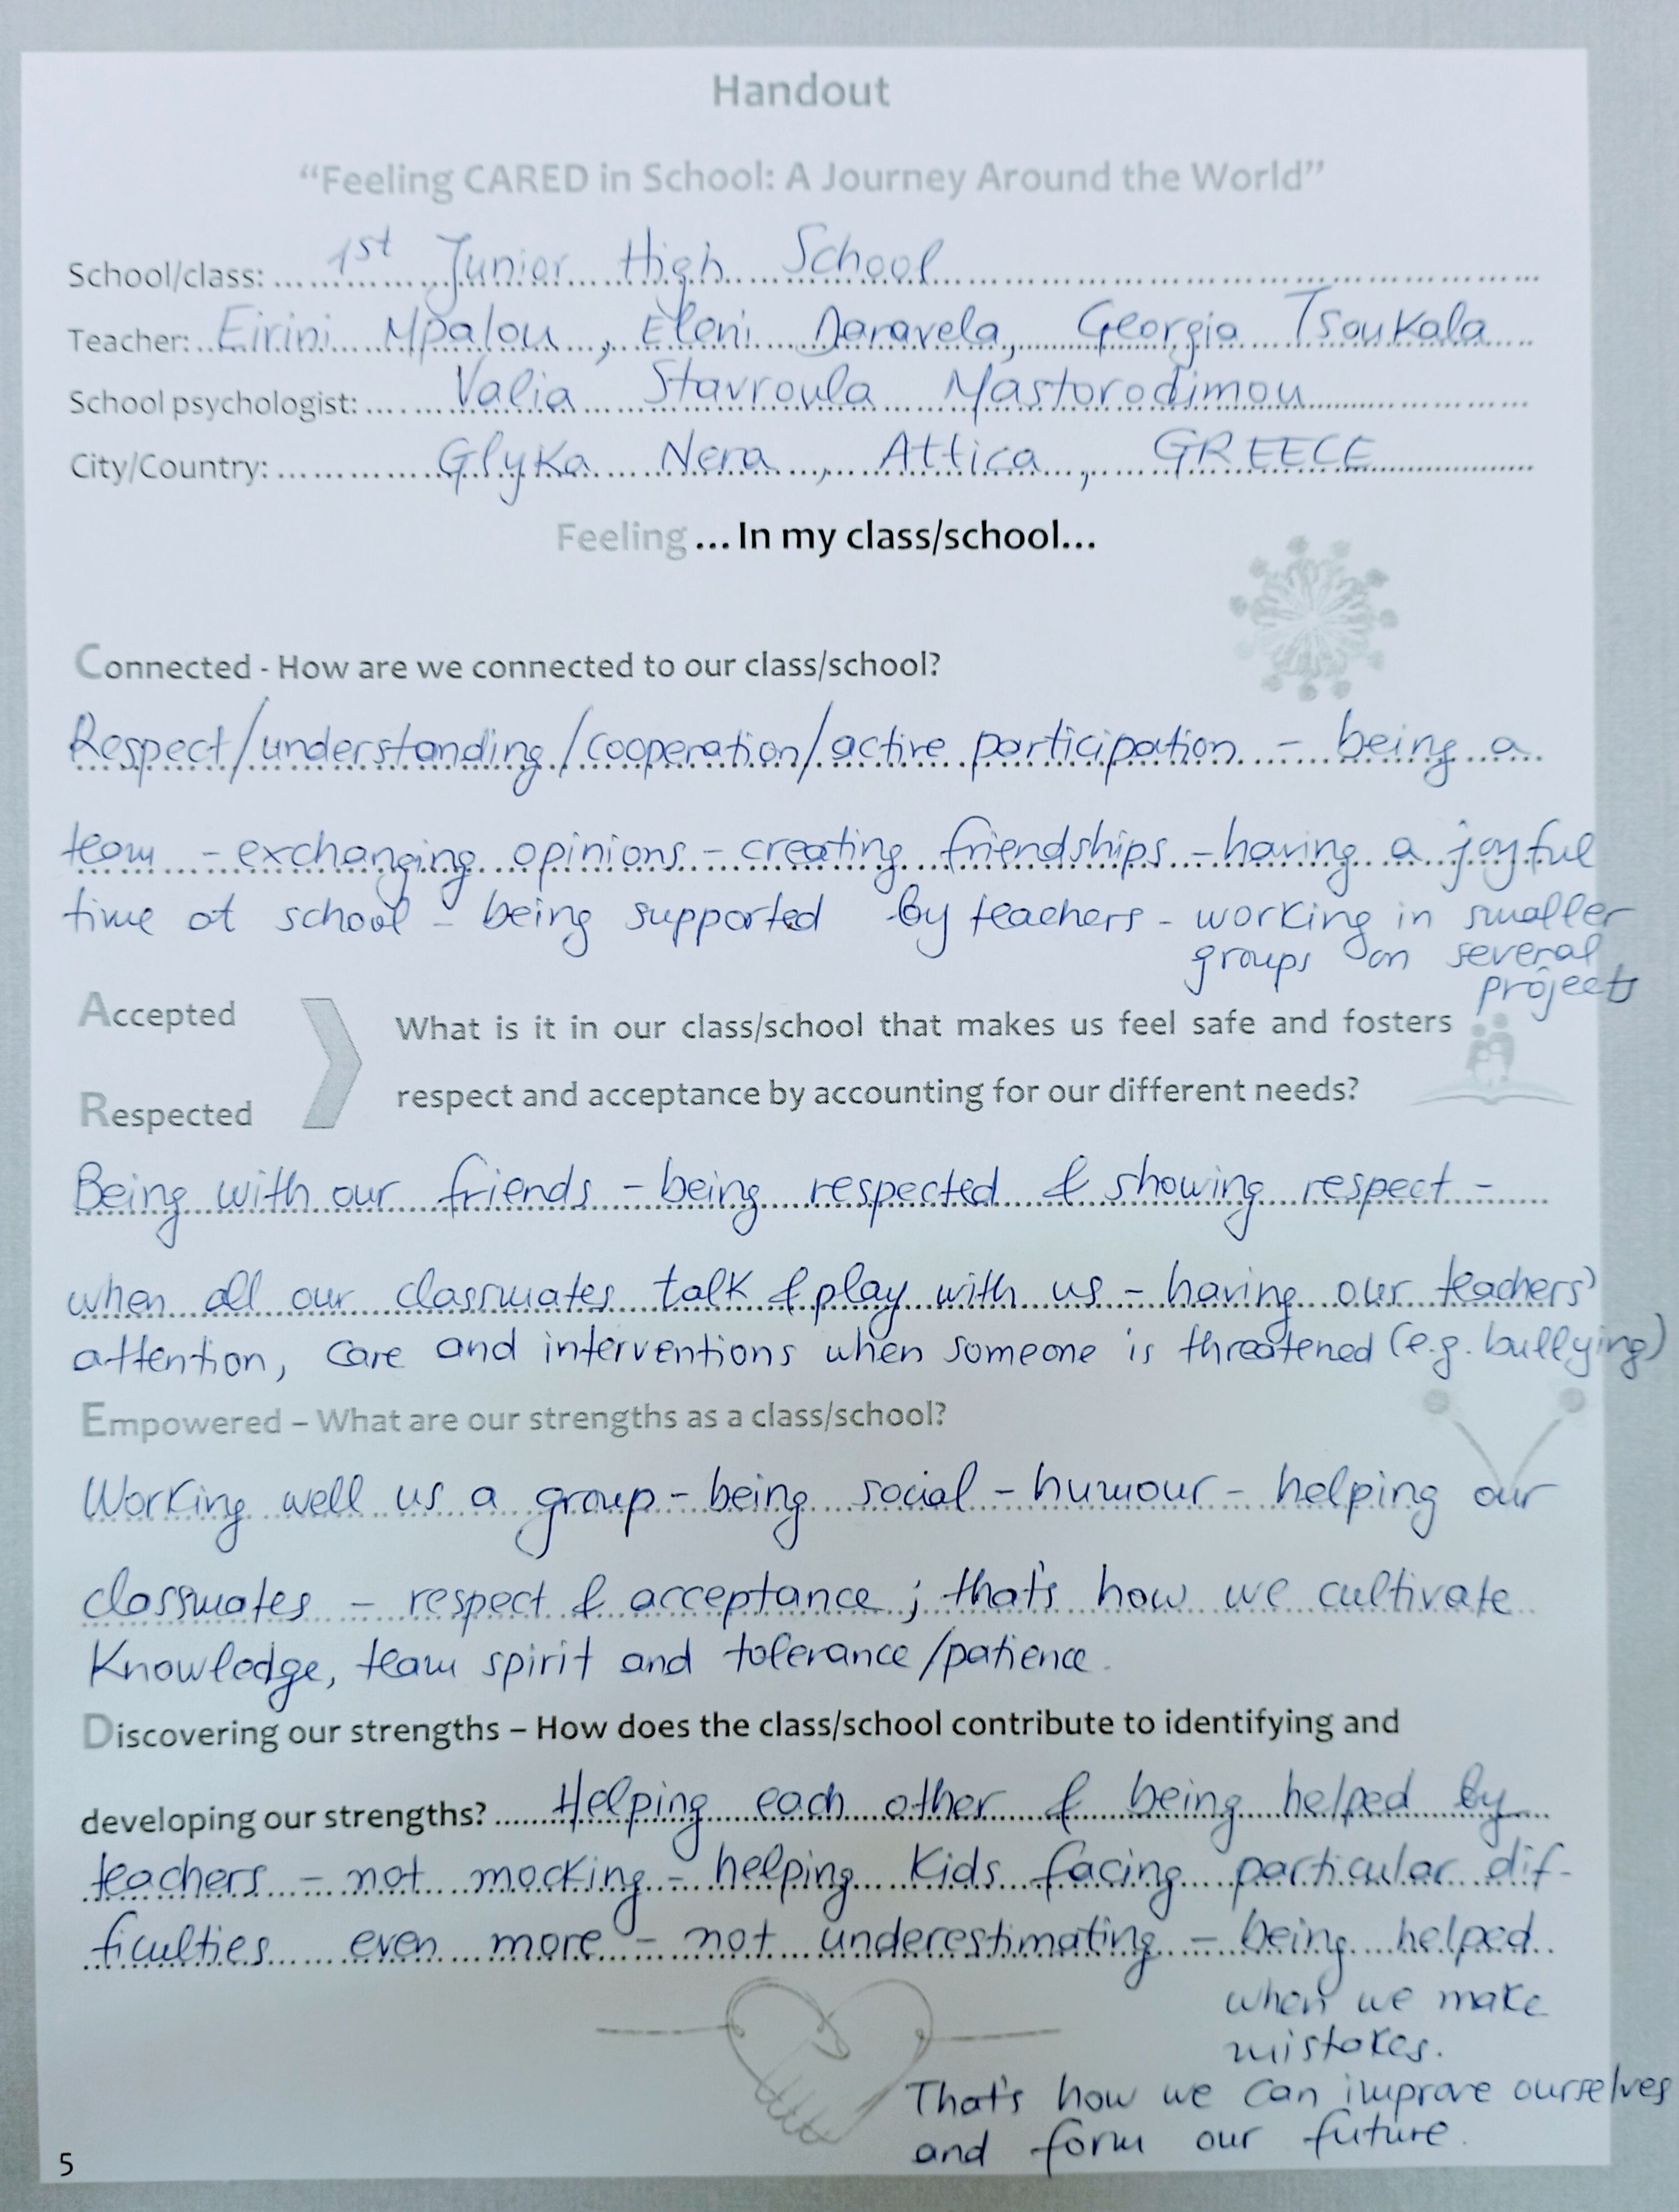 Handout
“Feeling CARED in School: A Journey Around the World”
School/class: 1st Junior High School
Teacher: Eirini Mpalou, Eleni Daravela, Georgia Tsoukala
School psychologist: Valia Stavroula Mastorodimou
City/Country: Glyka Nera, Attica, GREECE
Feeling ... In my class/school...
Connected - How are we connected to our class/school?
Respect/understanding/cooperation/active participation - being a
team - exchanging opinions - creating friendships - having a joyful
time at school - being supported by teachers - working in smaller
groups on several
projects
Accepted
What is it in our class/school that makes us feel safe and fosters
respect and acceptance by accounting for our different needs?
Respected
Being with our friends - being respected & showing respect -
when all our classmates talk & play with us - having our teachers'
attention, care and interventions when someone is threatened (e.g. bullying)
Empowered – What are our strengths as a class/school?
Working well us a group - being social - humour - helping our
classmates - respect & acceptance ; that's how we cultivate
knowledge, team spirit and tolerance/patience.
Discovering our strengths – How does the class/school contribute to identifying and
developing our strengths? Helping each other & being helped by
teachers - not mocking - helping kids facing particular dif-
ficulties even more - not underestimating - being helped
when we make
mistakes.
That's how we can improve ourselves
and form our future.
5